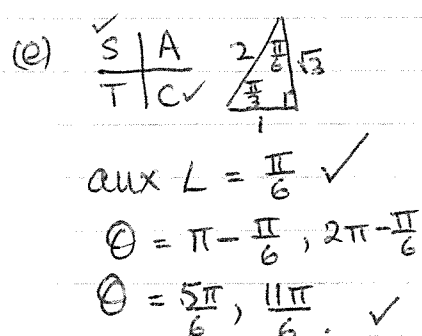 (e) S | A 2 π/6 √3
T | C ✓ π/3
1
aux L = π/6 ✓
θ = π - π/6 , 2π - π/6
θ = 5π/6 , 11π/6 . ✓